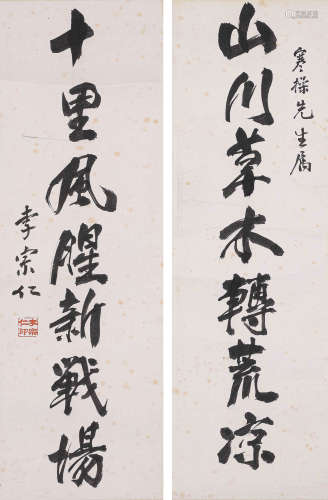 寒操先生属
山川草木轉荒凉
十里風腥新戰場
李宗仁
李宗仁印